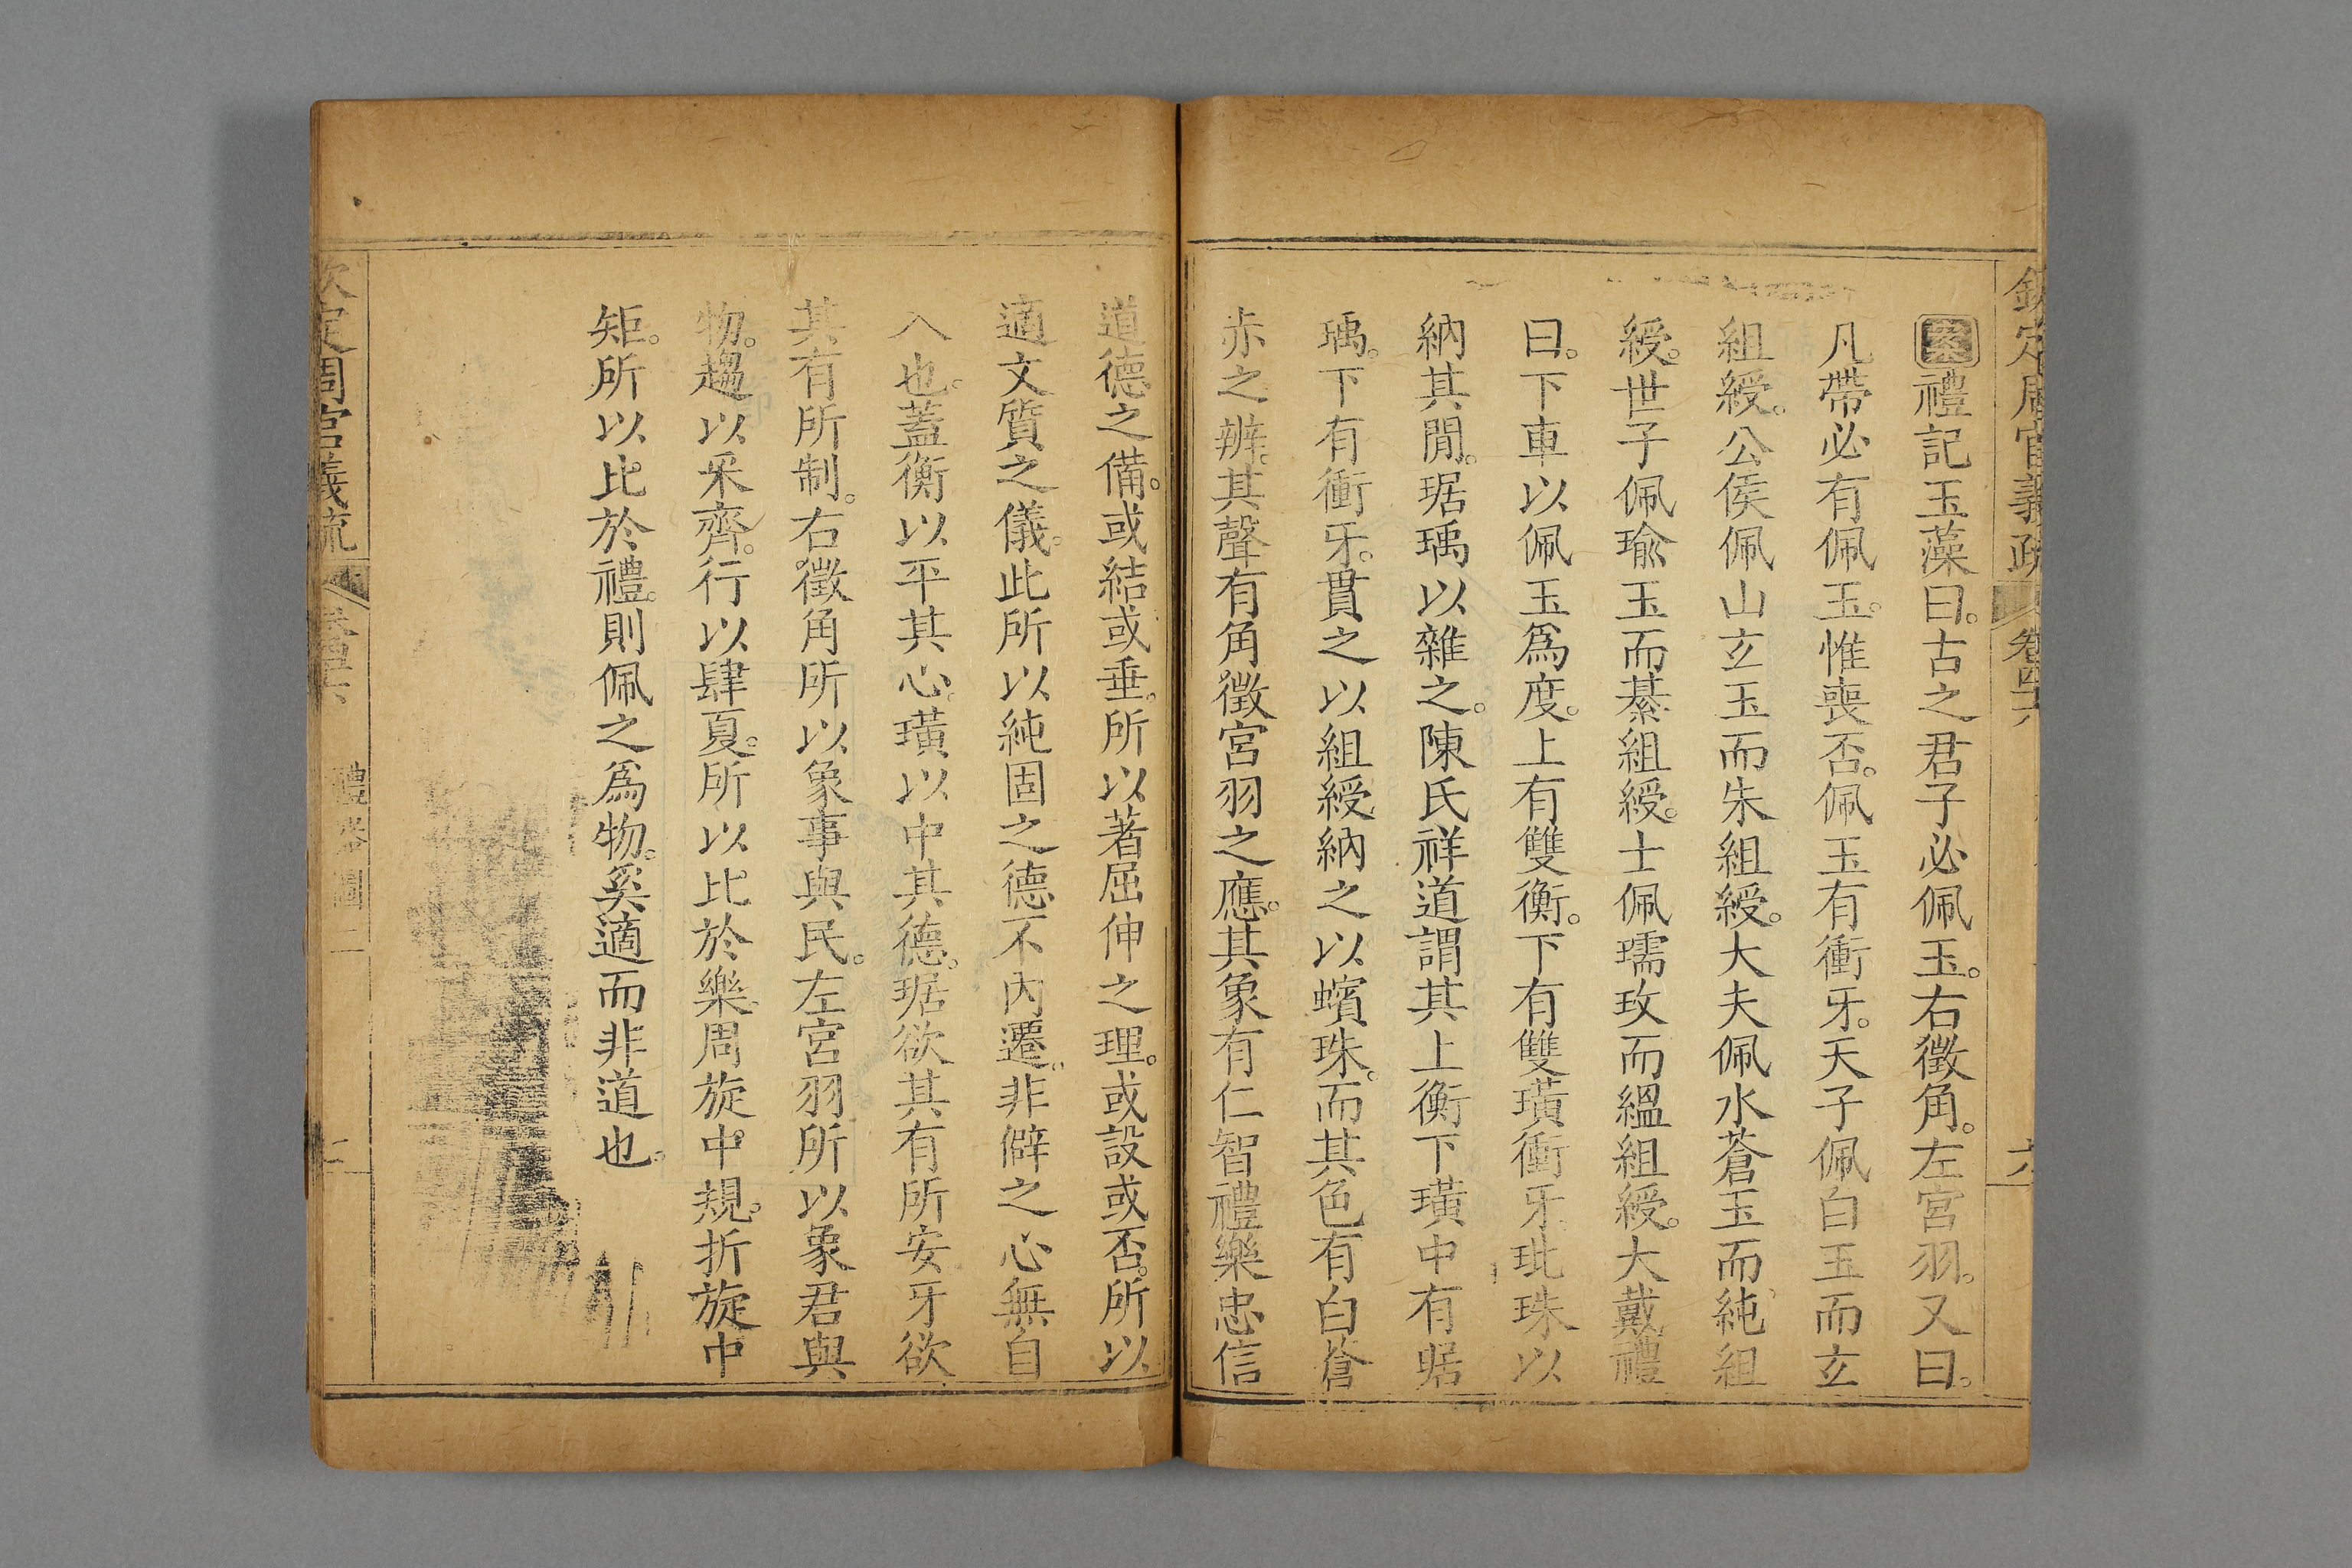 欽定周官義疏 卷四十六 六
案禮記玉藻曰。古之君子必佩玉。右徵角。左宮羽。又曰。
凡帶必有佩玉。惟喪否。佩玉有衝牙。天子佩白玉而玄
組綬。公侯佩山玄玉而朱組綬。大夫佩水蒼玉而純組
綬。世子佩瑜玉而綦組綬。士佩瓀玫而縕組綬。大戴禮
曰。下車以佩玉爲度。上有雙衡。下有雙璜衝牙玭珠以
納其閒。琚瑀以雜之。陳氏祥道謂其上衡下璜中有琚
瑀。下有衝牙。貫之以組綬納之以蠙珠。而其色有白蒼
赤之辨。其聲有角徵宮羽之應。其象有仁智禮樂忠信
道德之備。或結或垂。所以著屈伸之理。或設或否。所以
適文質之儀。此所以純固之德不內遷。非僻之心無自
入也。蓋衡以平其心。璜以中其德。琚欲其有所安牙欲
其有所制。右徵角所以象事與民。左宮羽所以象君與
物。趨以采齊。行以肆夏。所以比於樂。周旋中規。折旋中
矩。所以比於禮。則佩之爲物。奚適而非道也。
欽定周官義疏 卷四十六 禮器圖二